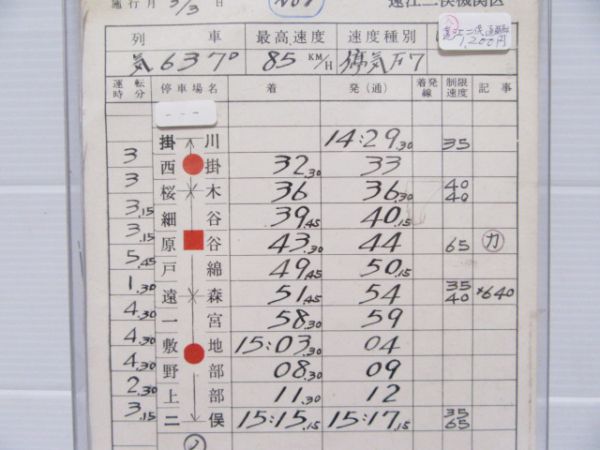 運行月 3/3 日 遠江二俣機関区
遠江二俣
1,200円
列車 最高速度 速度種別
気637D 85 KM/H 停気F7
運転時分 停車場名 着 発(通) 着発線 制限速度 記事
---
掛川 14:29.30 35
3
西掛 32.30 33
3
桜木 36 36.30 40 40
3.15
細谷 39.45 40.15
3.15
原谷 43.30 44 65 力
5.45
戸綿 49.45 50.15
1.30
遠森 51.45 54 35 40 ×640
4.30
一宮 58.30 59
4.30
敷地 15:03.30 04
4.30
野部 08.30 09
2.30
上部 11.30 12
3.15
二俣 15:15.15 15:17.15 35 65